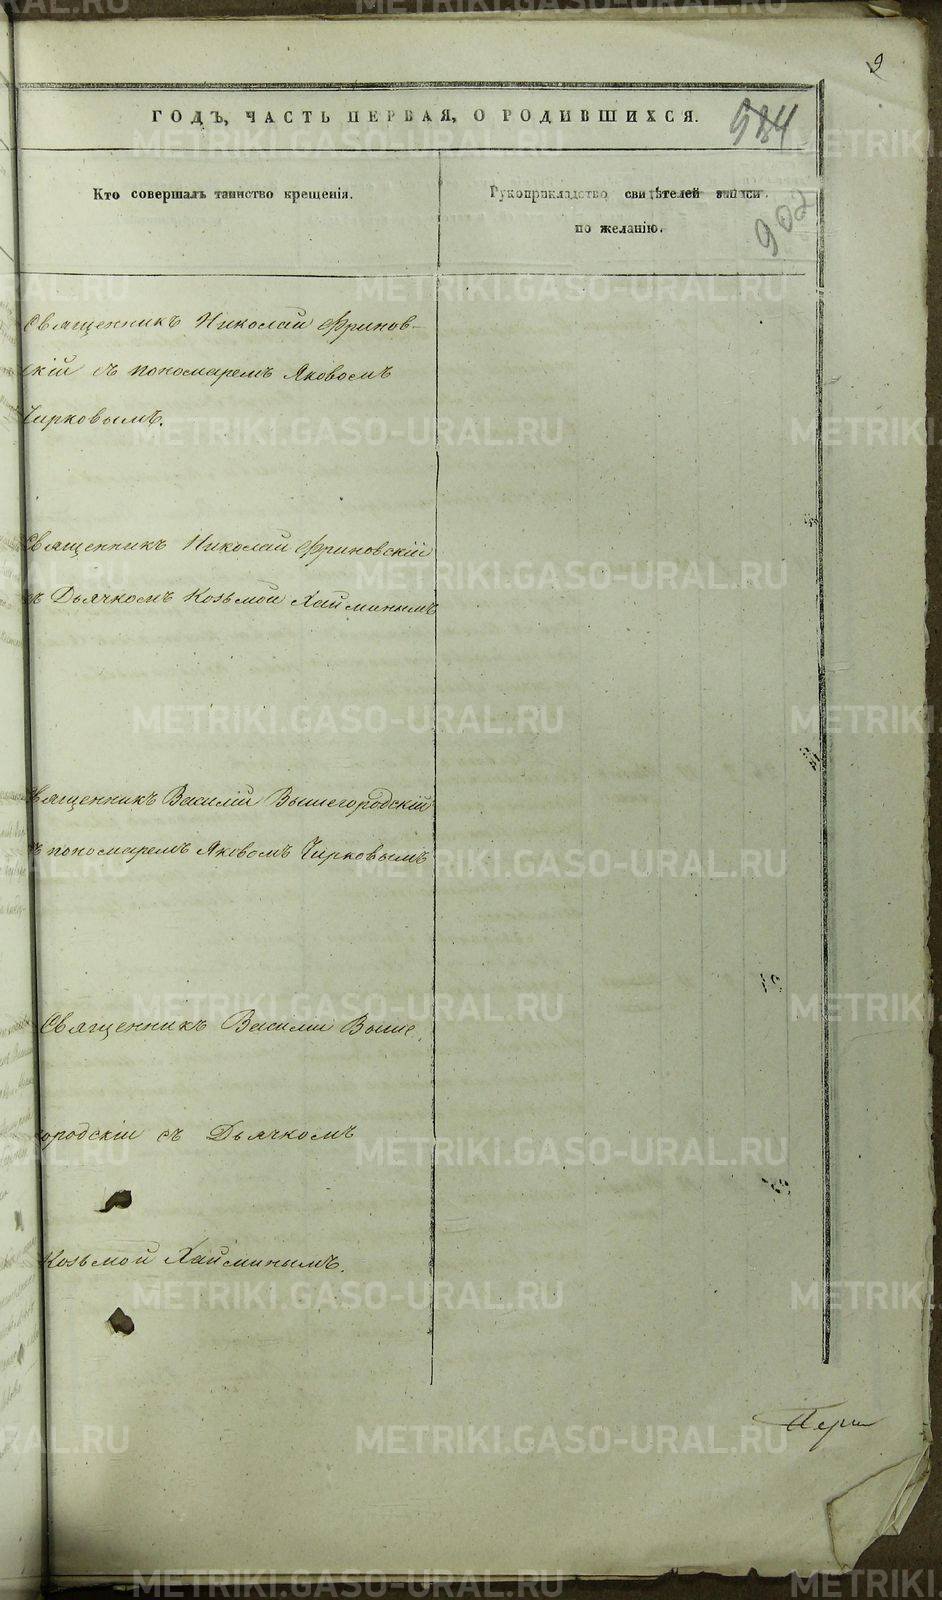 9
ГОДЪ, ЧАСТЬ ПЕРВАЯ, О РОДИВШИХСЯ.
984
Кто совершалъ таинство крещенія.
Рукоприкладство свидѣтелей записи
по желанію.
902
Священникъ Николай Фринов-
скій съ пономаремъ Яковомъ
Чирковымъ.
Священникъ Николай Фриновскій
съ Дьячкомъ Козьмой Хайминымъ
Священникъ Василій Вышегородскій
съ пономаремъ Яковомъ Чирковымъ
Священникъ Василій Выше
городскій съ Дьячкомъ
Козьмой Хайминымъ.
METRIKI.GASO-URAL.RU